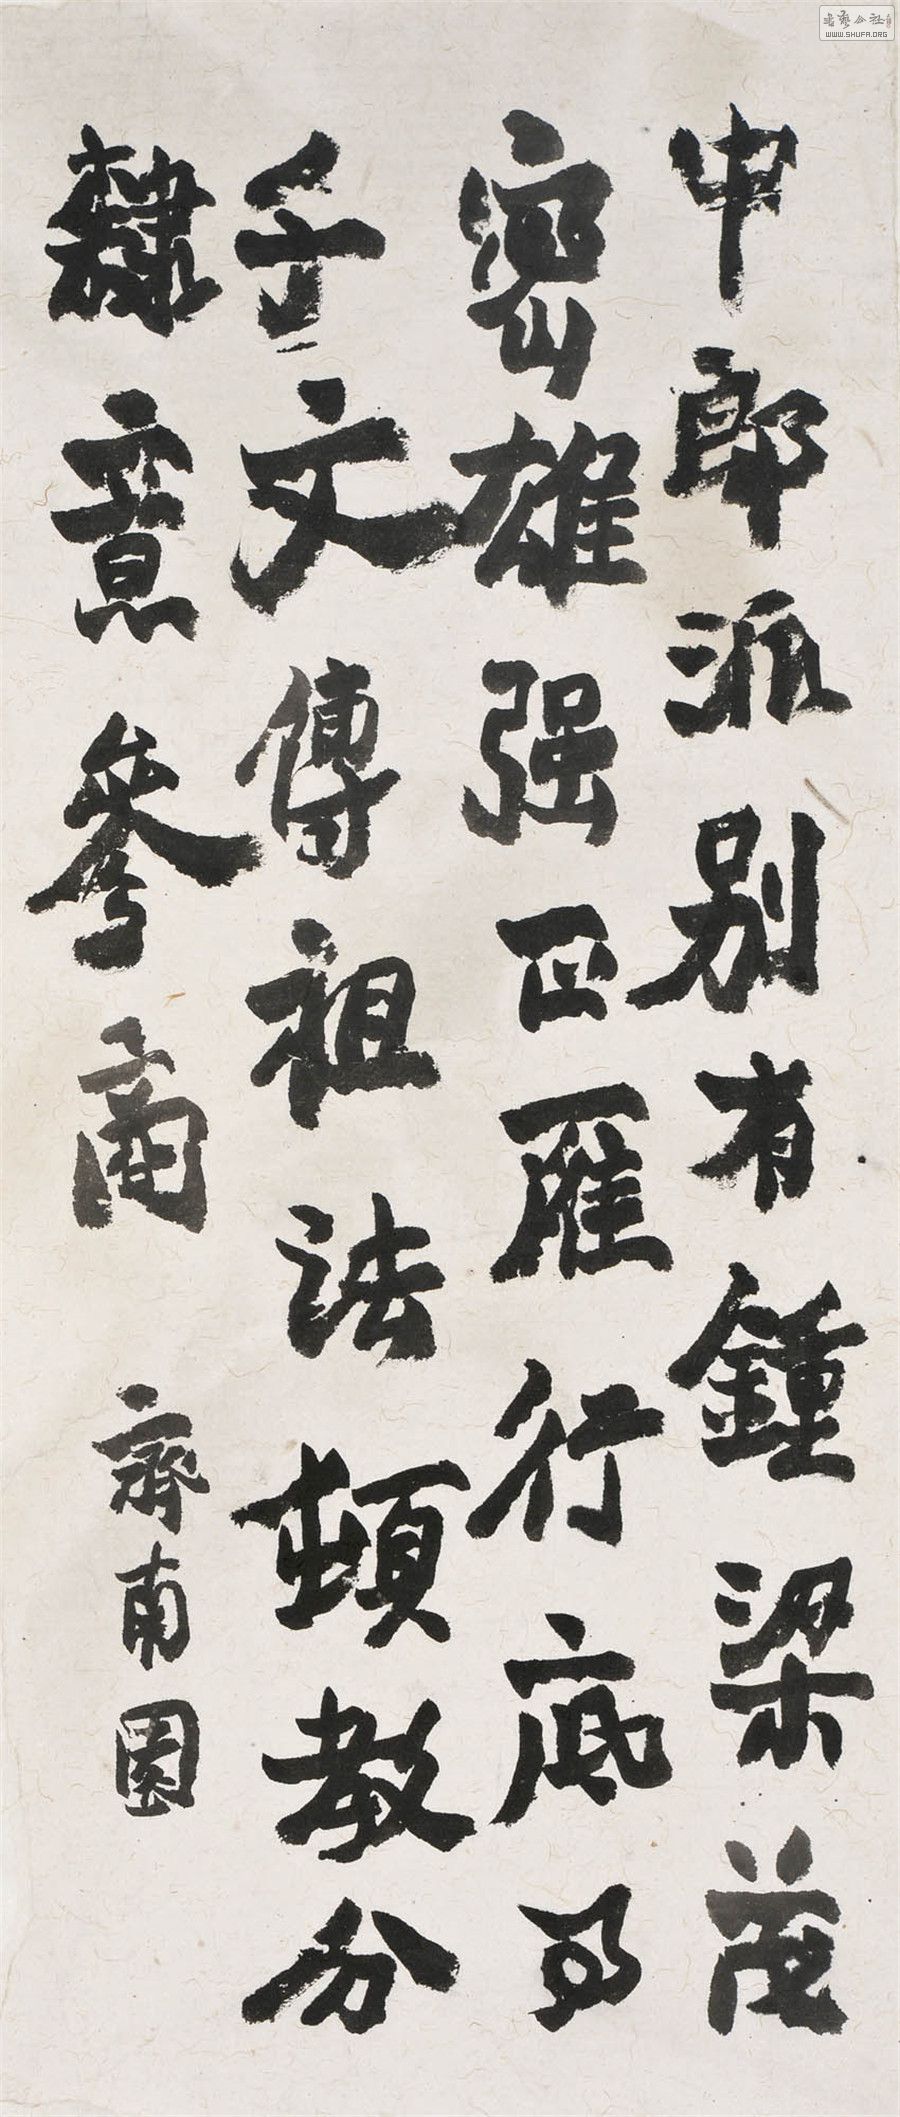 中郎派别有鍾梁茂
密雄强正雁行底事
千文傳祖法頓教分
隸意參商
齊南園
書藝公社
WWW.SHUFA.ORG